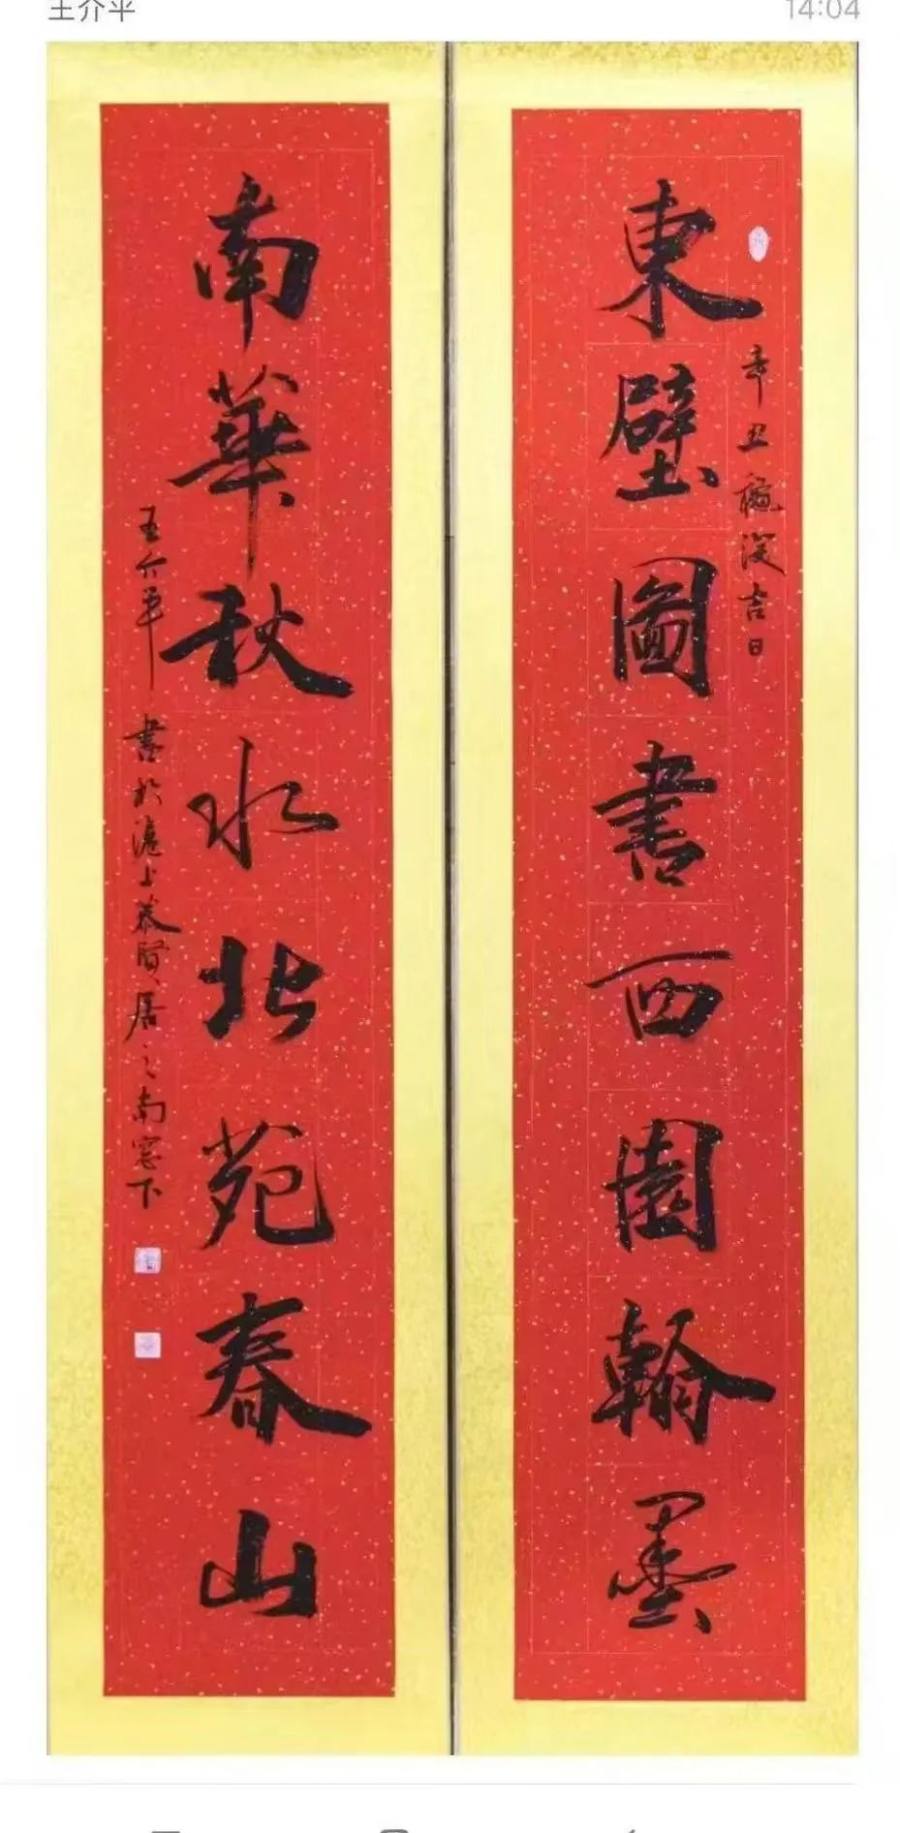 王介平
14:04
東壁圖書西園翰墨
辛丑穐深吉日
南華秋水北苑春山
王介平書於滬上慕賢居之南窓下